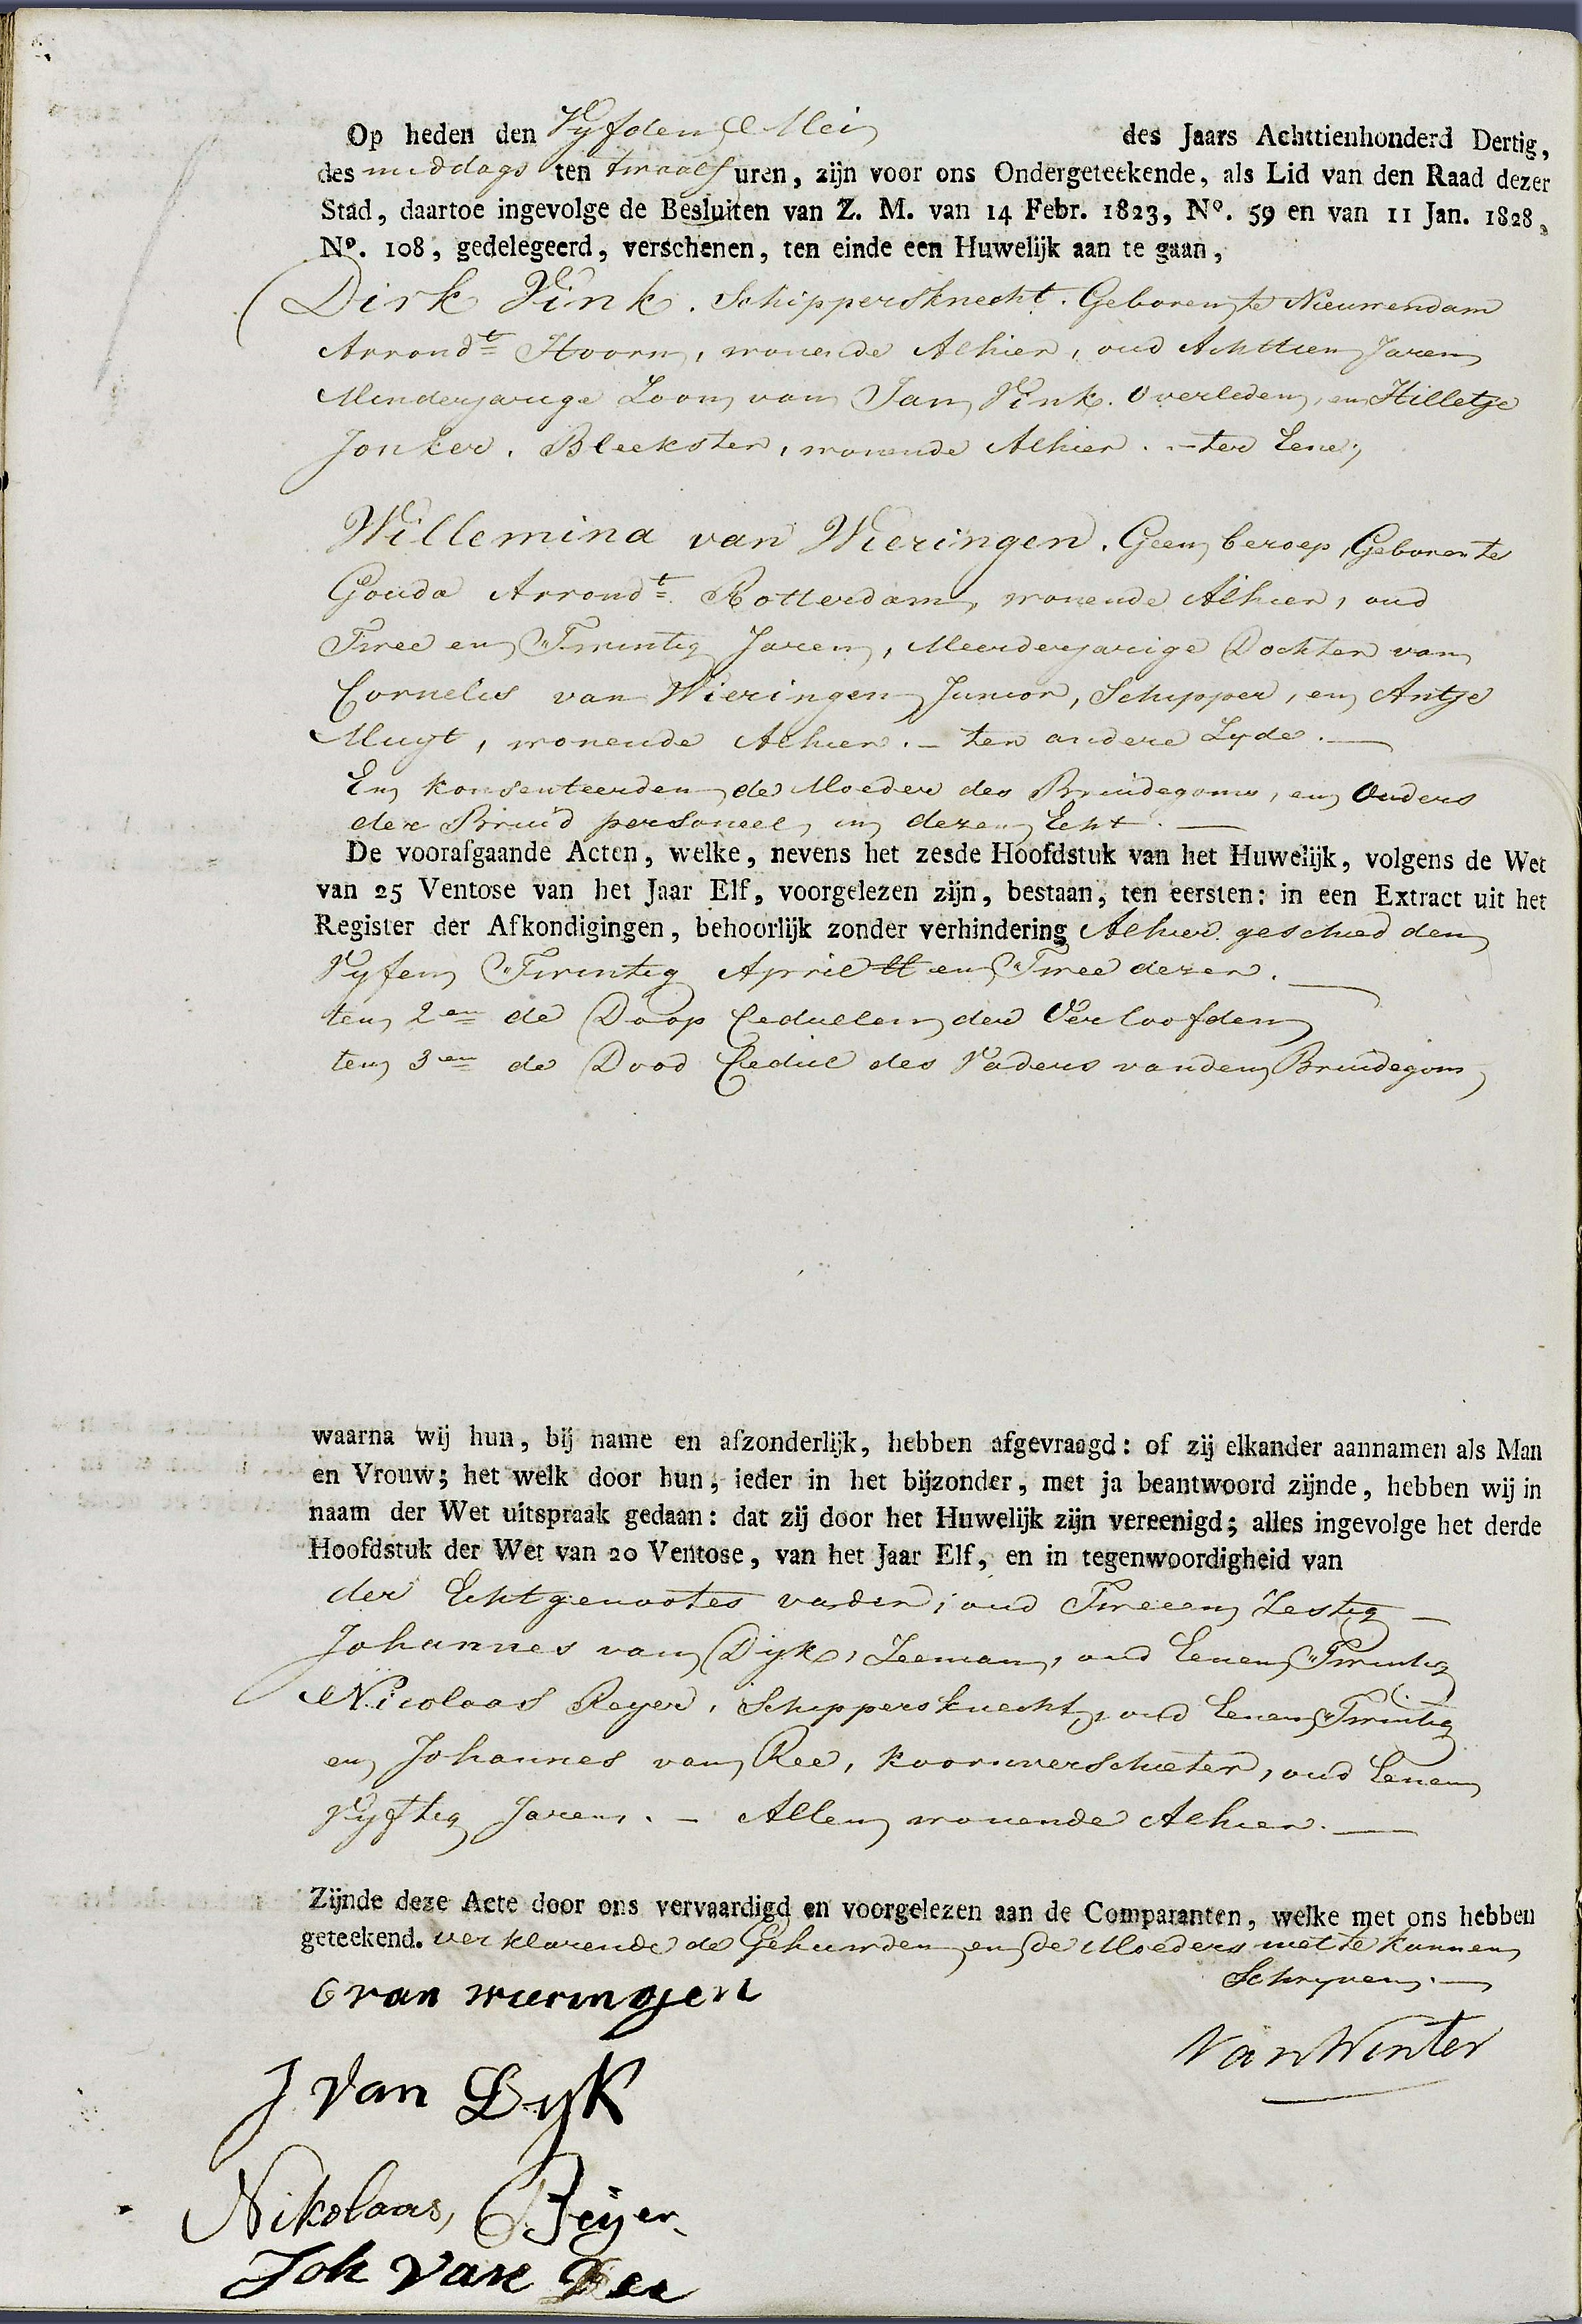 Op heden den Vyfden Mei des Jaars Achttienhonderd Dertig,
des middags ten twaalf uren, zijn voor ons Ondergeteekende, als Lid van den Raad dezer
Stad, daartoe ingevolge de Besluiten van Z. M. van 14 Febr. 1823, Nº. 59 en van 11 Jan. 1828,
Nº. 108, gedelegeerd, verschenen, ten einde een Huwelijk aan te gaan,
Dirk Vink. Schippersknecht. Geboren te Nieuwendam
Arrondt Hoorn, wonende Alhier, oud Achttien Jaren
Minderjarige Zoon van Jan Vink. Overleden, en Hilletje
Jonker. Bleekster, wonende Alhier. - ter Eene,
Willemina van Wieringen. Geen beroep, Geboren te
Gouda Arrondt Rotterdam, wonende Alhier, oud
Twee en Twintig Jaren, Meerderjarige Dochter van
Cornelis van Wieringen Junior, Schipper, en Antje
Muyt, wonende Alhier. - ter andere Zyde. -
En konsenteerden de Moeder des Bruidegoms, en Ouders
der Bruid personeel in dezen Echt. -
De voorafgaande Acten, welke, nevens het zesde Hoofdstuk van het Huwelijk, volgens de Wet
van 25 Ventose van het Jaar Elf, voorgelezen zijn, bestaan, ten eersten: in een Extract uit het
Register der Afkondigingen, behoorlijk zonder verhindering Alhier geschied den
Vyfen Twintig April ll en Twee dezer.
ten 2en de Doop Cedullen der Verloofden
ten 3en de Dood Cedul des Vaders van den Bruidegom
waarna wij hun, bij name en afzonderlijk, hebben afgevraagd: of zij elkander aannamen als Man
en Vrouw; het welk door hun, ieder in het bijzonder, met ja beantwoord zijnde, hebben wij in
naam der Wet uitspraak gedaan: dat zij door het Huwelijk zijn vereenigd; alles ingevolge het derde
Hoofdstuk der Wet van 20 Ventose, van het Jaar Elf, en in tegenwoordigheid van
der Echtgenootes vader, oud Tweeen Zestig -
Johannes van Dijk, Zeeman, oud Eenen Twintig
Nicolaas Reyer, Schippersknecht, oud Eenen Twintig
en Johannes van Ree, koornverschieter, oud Eenen
Vyftig Jaren. - Allen wonende Alhier. -
Zijnde deze Acte door ons vervaardigd en voorgelezen aan de Comparanten, welke met ons hebben
geteekend. verklarende de Gehuwden en de Moeders niet te kunnen
Schryven. -
C van wieringen
Van Winter
J van Dyk
Nikolaas, Beijer
Joh van Ree